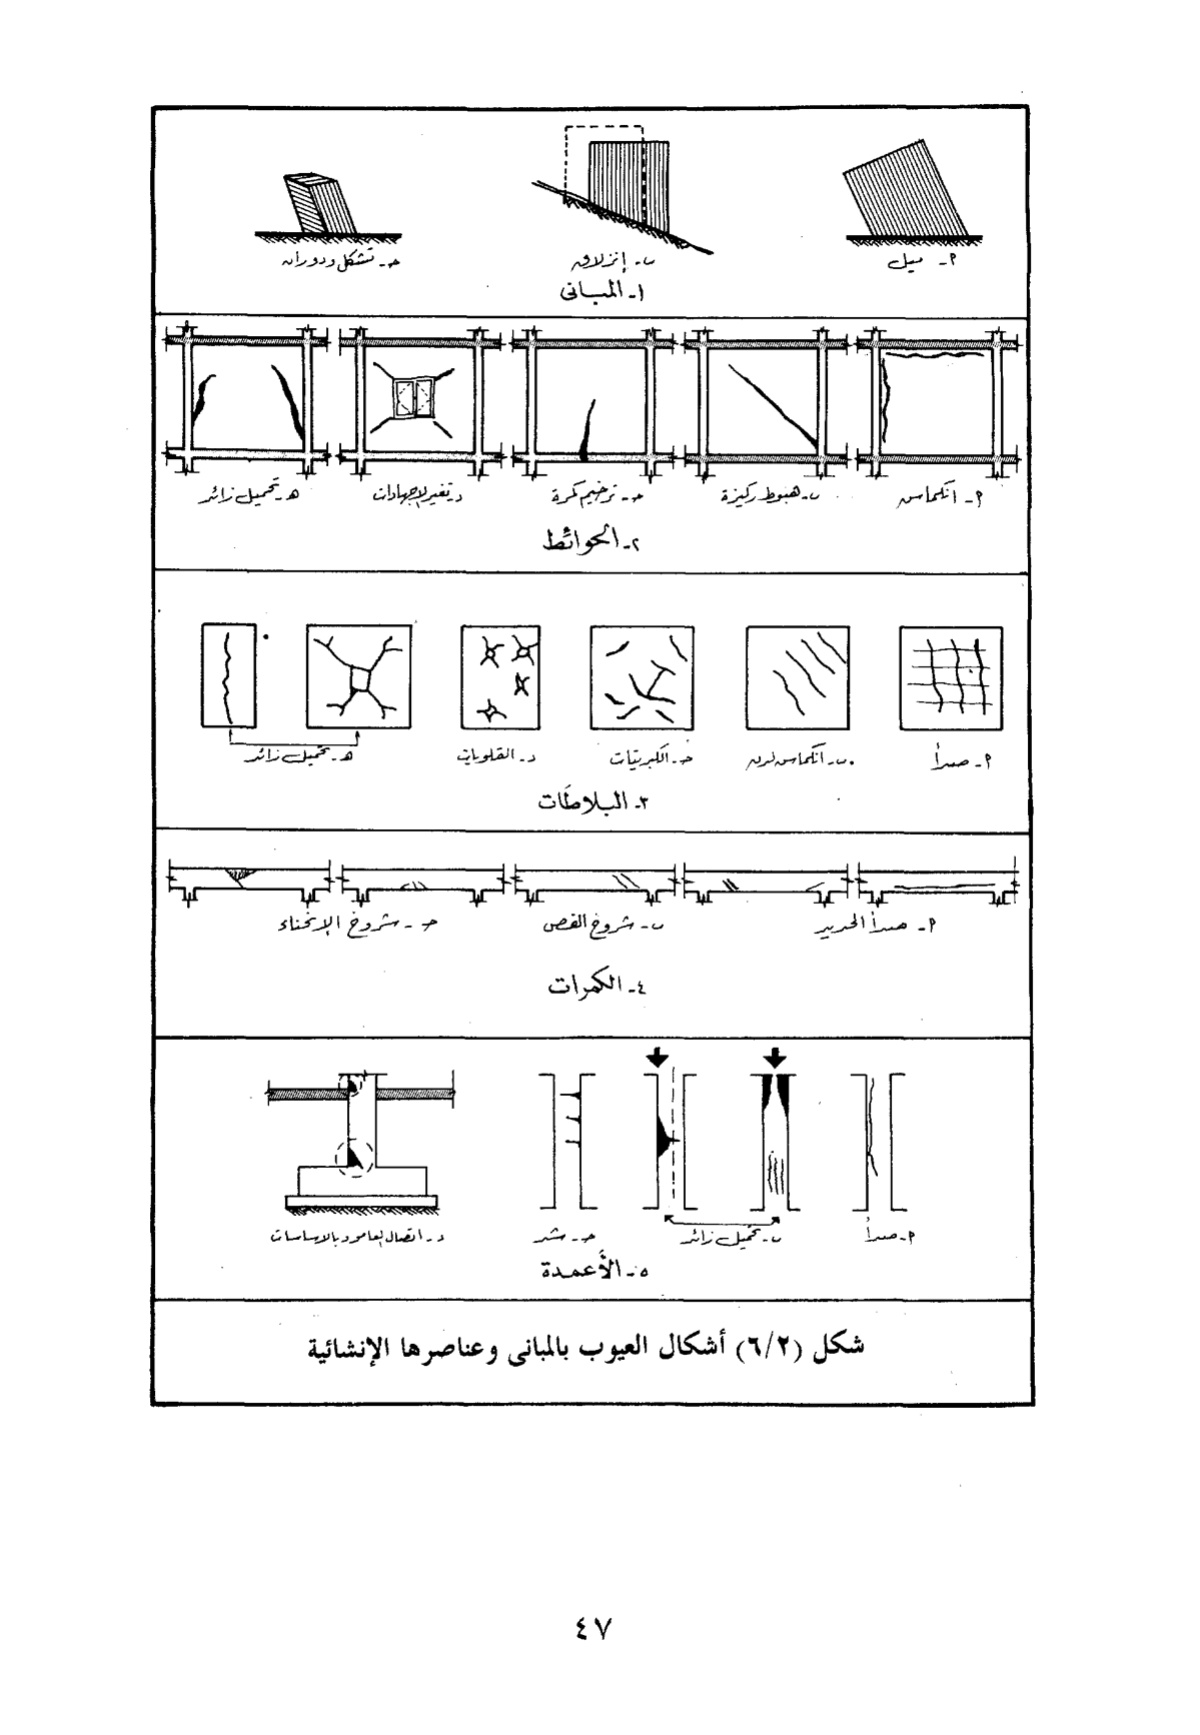 أ- ميل
ب- إنزلاق
حـ- تشكل ودوران
١- المبانى
أ- انكماس
ب- هبوط ركيزة
حـ- ترخيم كمرة
د- تغير الاجهادات
هـ- تحميل زائد
٢- الحوائط
أ- صدأ
ب- انكماس لدن
حـ- الكبريتات
د- القلويات
هـ- تحميل زائد
٣- البلاطات
أ- صدأ الحديد
ب- شروخ القص
حـ- شروخ الإنحناء
٤- الكمرات
أ- صدأ
ب- تحميل زائد
حـ- شد
د- اتصال العامود بالاساسات
٥- الأعمدة
شكل (٦/٢) أشكال العيوب بالمبانى وعناصرها الإنشائية
٤٧